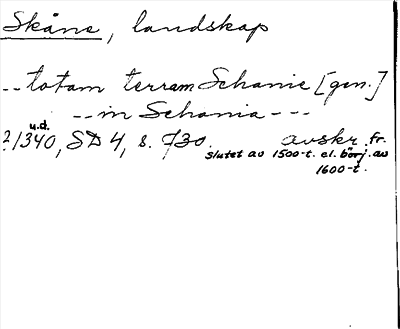 Skåne, landskap
-- totam terram Schanie [gen.]
-- in Schania ---
u.d.
?/1340, SD 4, s. 730. avskr. fr.
slutet av 1500-t. el. börj. av
1600-t.